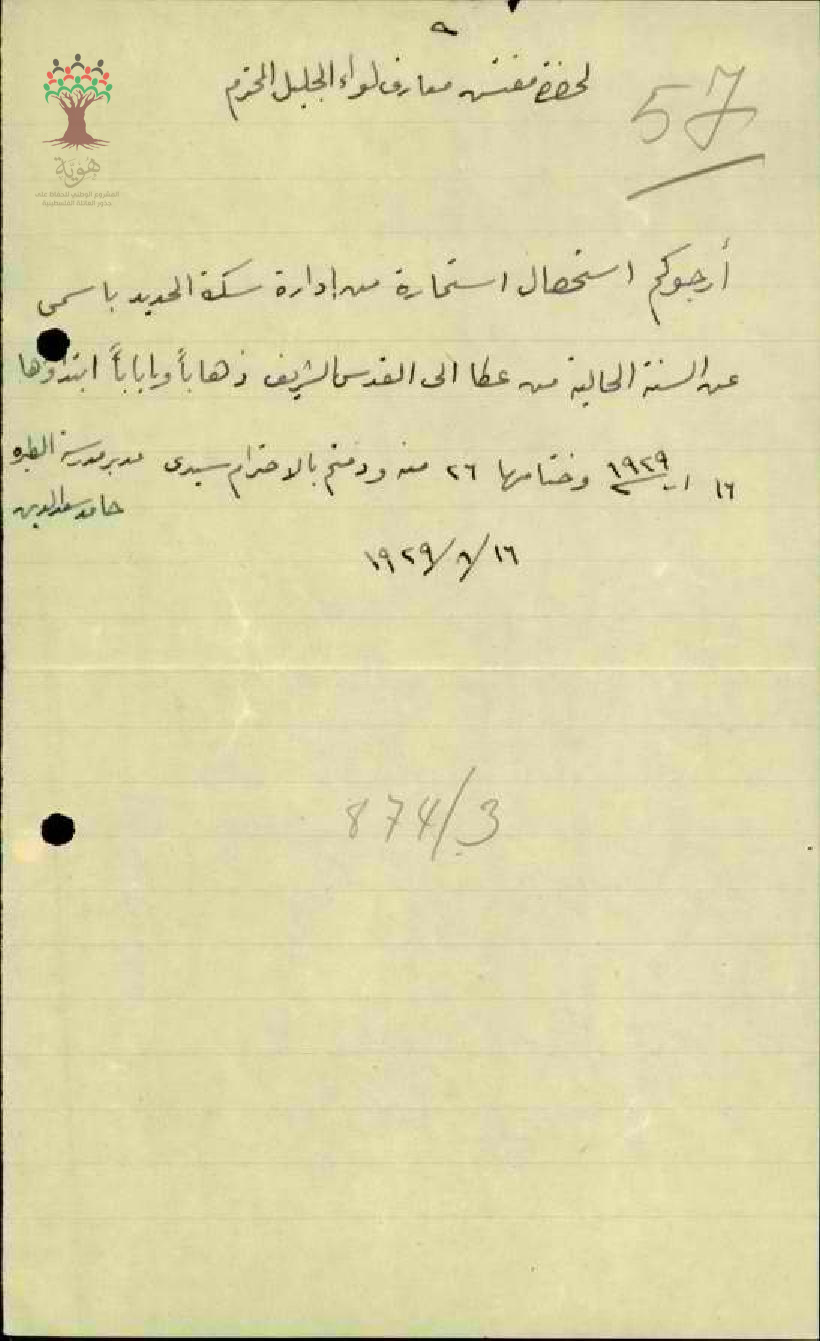 ٩
لحضرة مفتش معارف لواء الجليل المحترم
57
هَوِيَّة
المشروع الوطني للحفاظ على
جذور العائلة الفلسطينية
أرجوكم استحصال استمارة من إدارة سكة الحديد باسمي
عن السنة الحالية من عكا الى القدس الشريف ذهاباً واياباً ابتداؤها
١٦ آب ١٩٢٩ وختامها ٢٦ منه ودمتم بالاحترام سيدي مدير مدرسة الطيره
حامد سعد الدين
١٦/٨/١٩٢٩
874/3